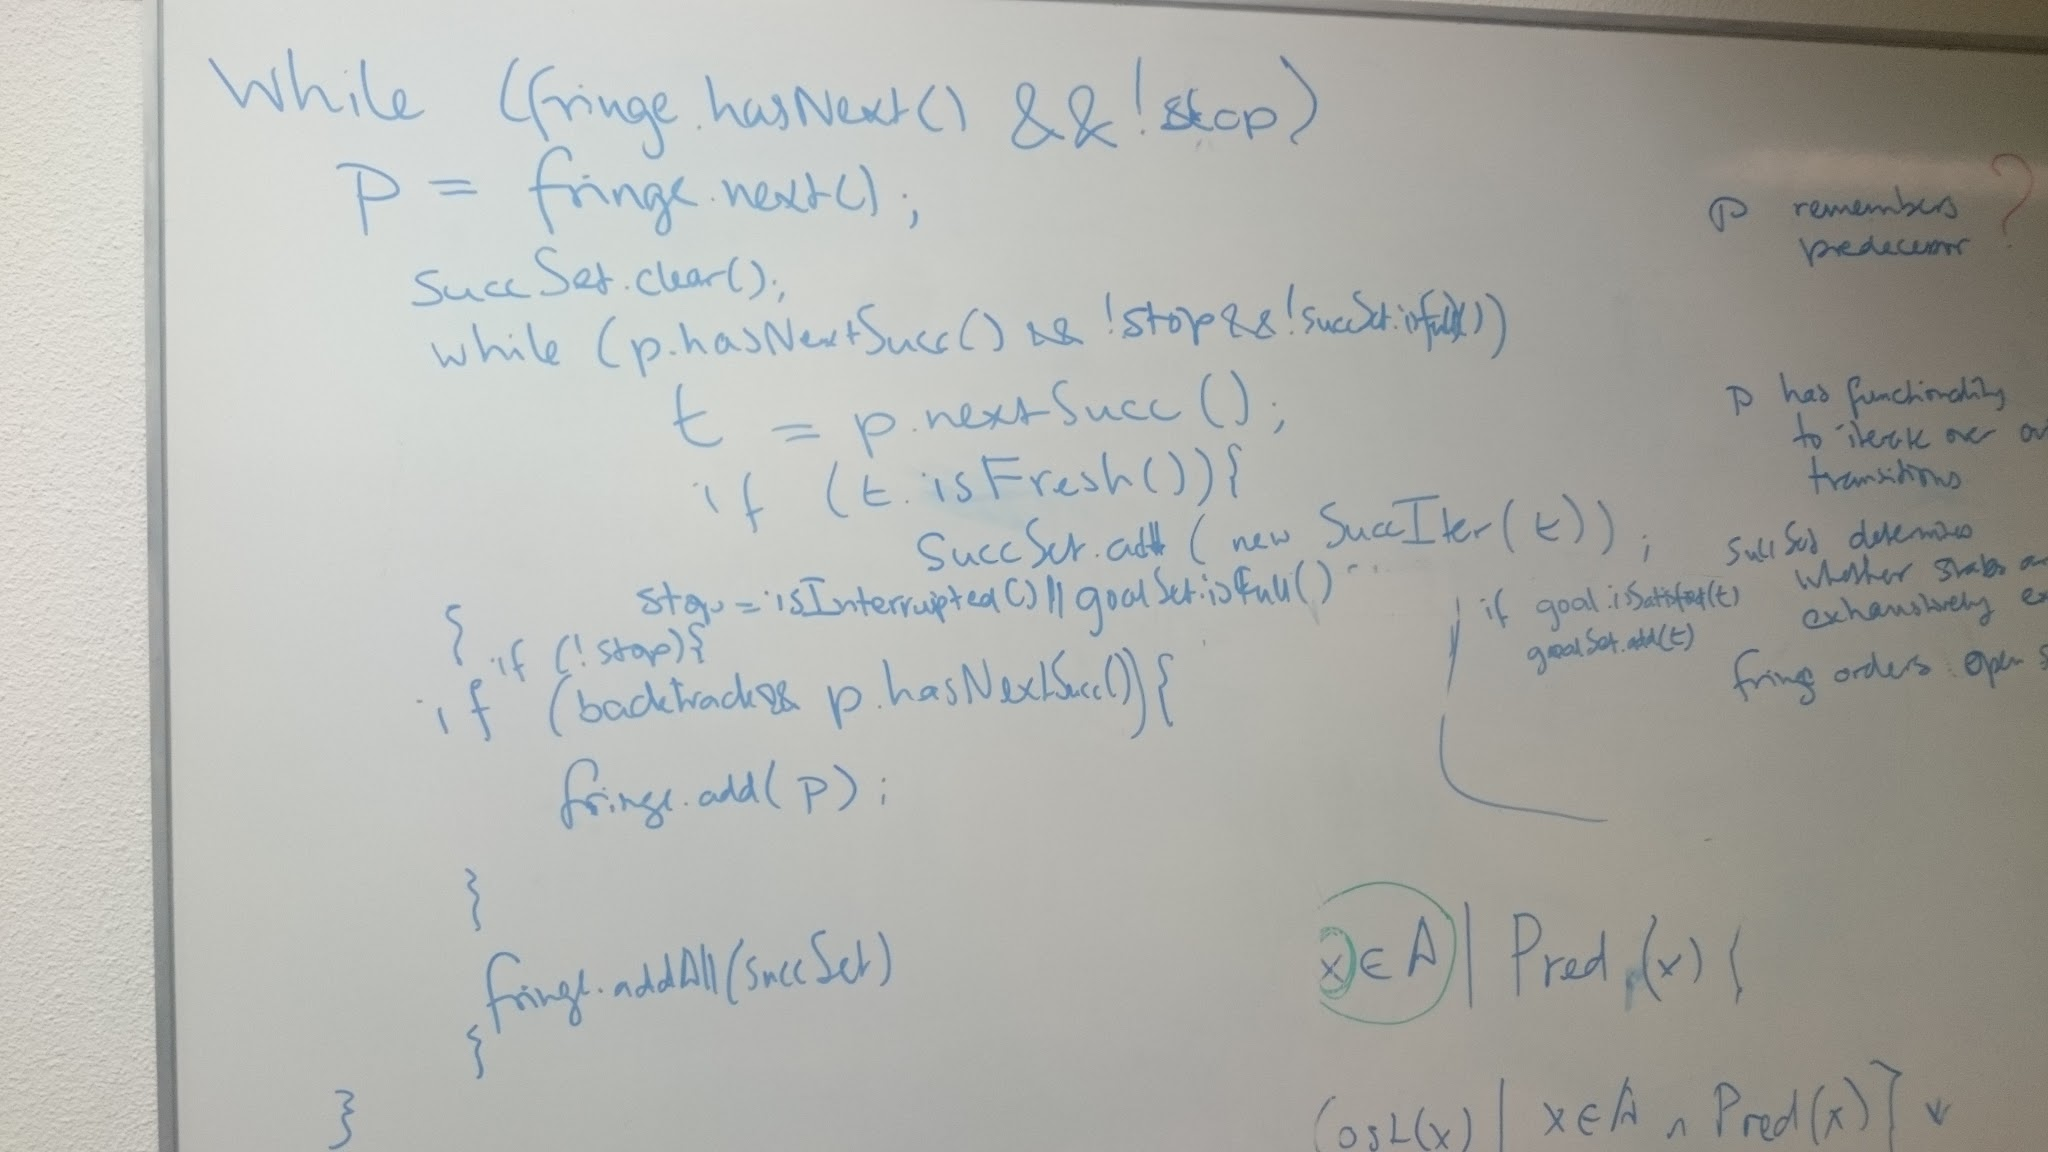 While (fringe.hasNext() && !stop)
P = fringe.next();
succSet.clear();
while (p.hasNextSucc() && !stop && !succSet.isfull())
t = p.nextSucc();
if (t.isFresh()){
SuccSet.add (new SuccIter(t));
stop = isInterrupted() || goalSet.isFull()
}
if (!stop){
if (backtrack && p.hasNextSucc()){
fringe.add(p);
}
fringe.addAll(succSet)
}
}
if goal.isSatisfied(t)
goalSet.add(t)
P remembers ?
predecessor
P has functionality
to iterate over
transitions
SuccSet determines
whether states
exhaustively
fringe orders open
x ∈ A | Pred (x) {
(osL(x) | x ∈ A ∩ Pred(x)}